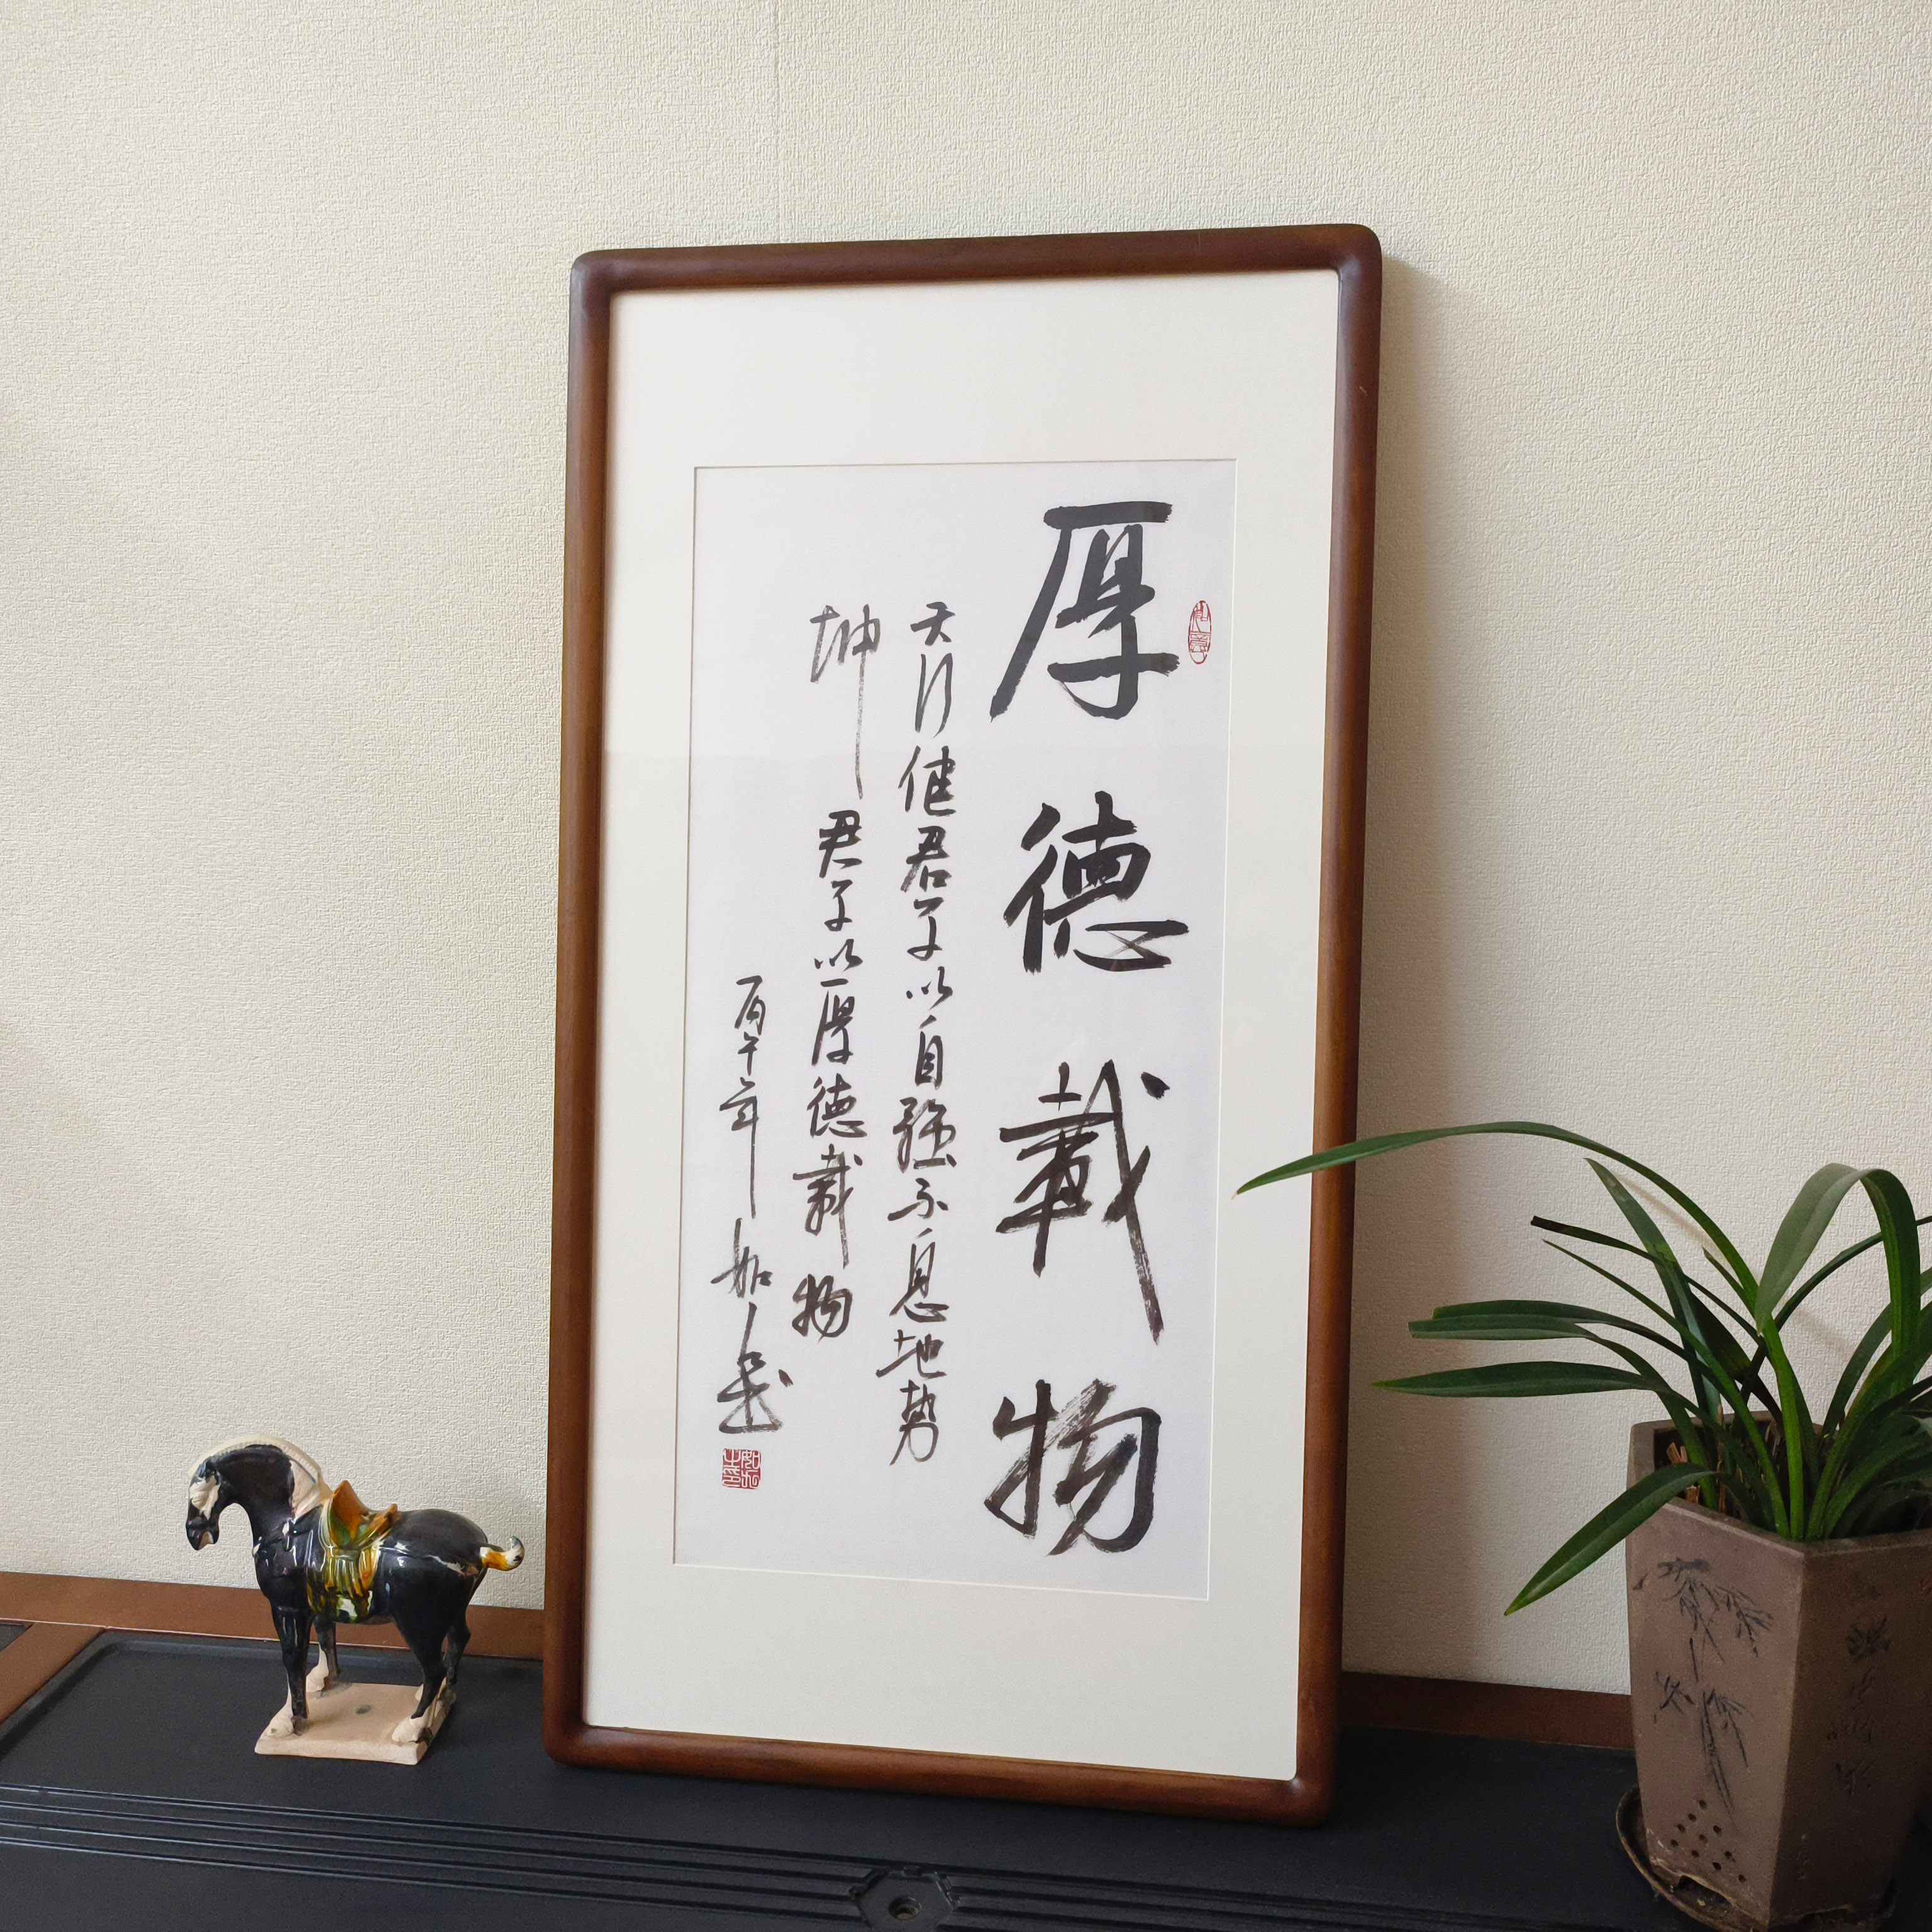 厚德載物
天行健君子以自強不息地勢
坤君子以厚德載物
丙午年如松
如松
之印